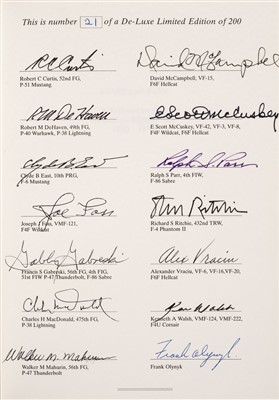 This is number 21 of a De-Luxe Limited Edition of 200
R C Curtis
Robert C Curtis, 52nd FG,
P-51 Mustang
David McCampbell
David McCampbell, VF-15,
F6F Hellcat
R M DeHaven
Robert M DeHaven, 49th FG,
P-40 Warhawk, P-38 Lightning
E Scott McCuskey
E Scott McCuskey, VF-42, VF-3, VF-8,
F4F Wildcat, F6F Hellcat
Clyde B East
Clyde B East, 10th PRG,
F-6 Mustang
Ralph S. Parr
Ralph S Parr, 4th FIW,
F-86 Sabre
Joe Foss
Joseph J Foss, VMF-121,
F4F Wildcat
Steve Ritchie
Richard S Ritchie, 432nd TRW,
F-4 Phantom II
Gabby Gabreski
Francis S Gabreski, 56th FG, 4th FIG,
51st FIW P-47 Thunderbolt, F-86 Sabre
Alex Vraciu
Alexander Vraciu, VF-6, VF-16, VF-20,
F6F Hellcat
Charles H MacDonald, 475th FG,
P-38 Lightning
Ken Walsh
Kenneth A Walsh, VMF-124, VMF-222,
F4U Corsair
Walker M. Mahurin
Walker M Mahurin, 56th FG,
P-47 Thunderbolt
Frank Olynyk
Frank Olynyk